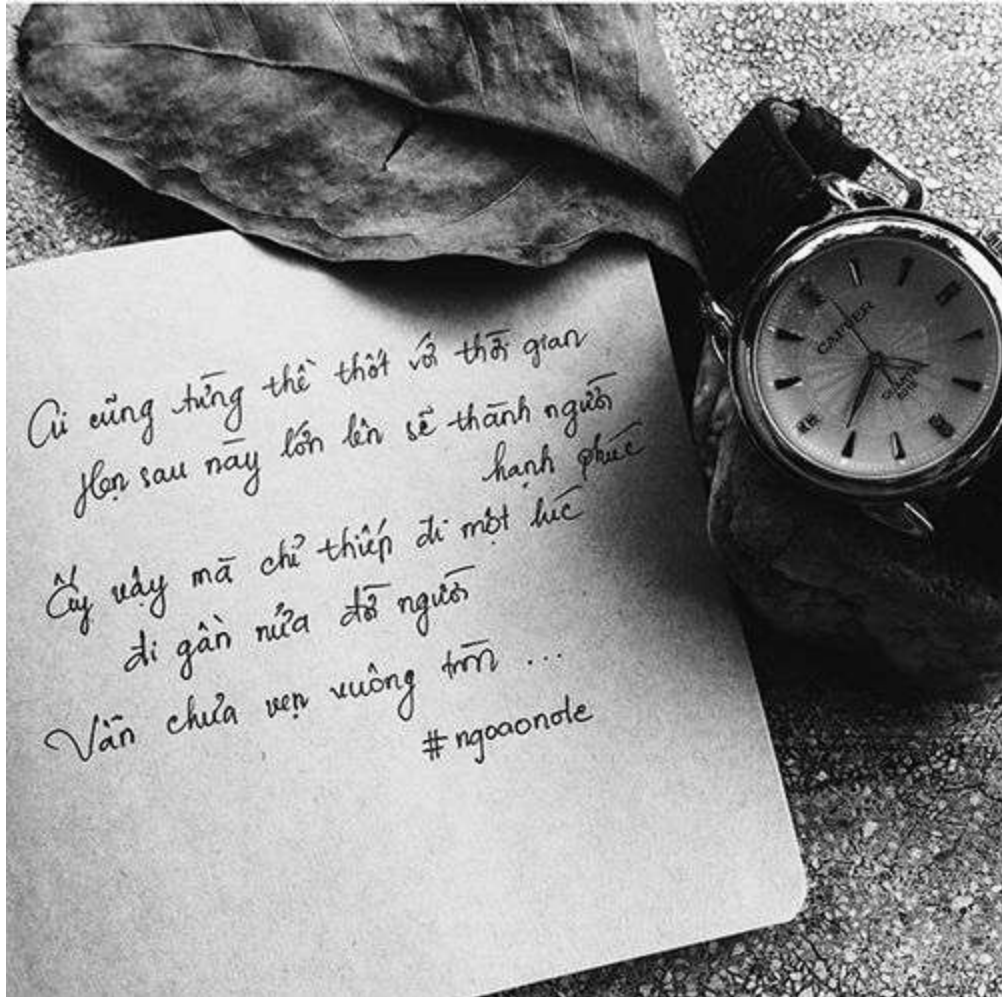 Ai cũng từng thề thốt với thời gian
Hẹn sau này lớn lên sẽ thành người
hạnh phúc
Ấy vậy mà chỉ thiếp đi một lúc
đi gần nửa đời người
Vẫn chưa vẹn vuông tròn ...
#ngoaonote